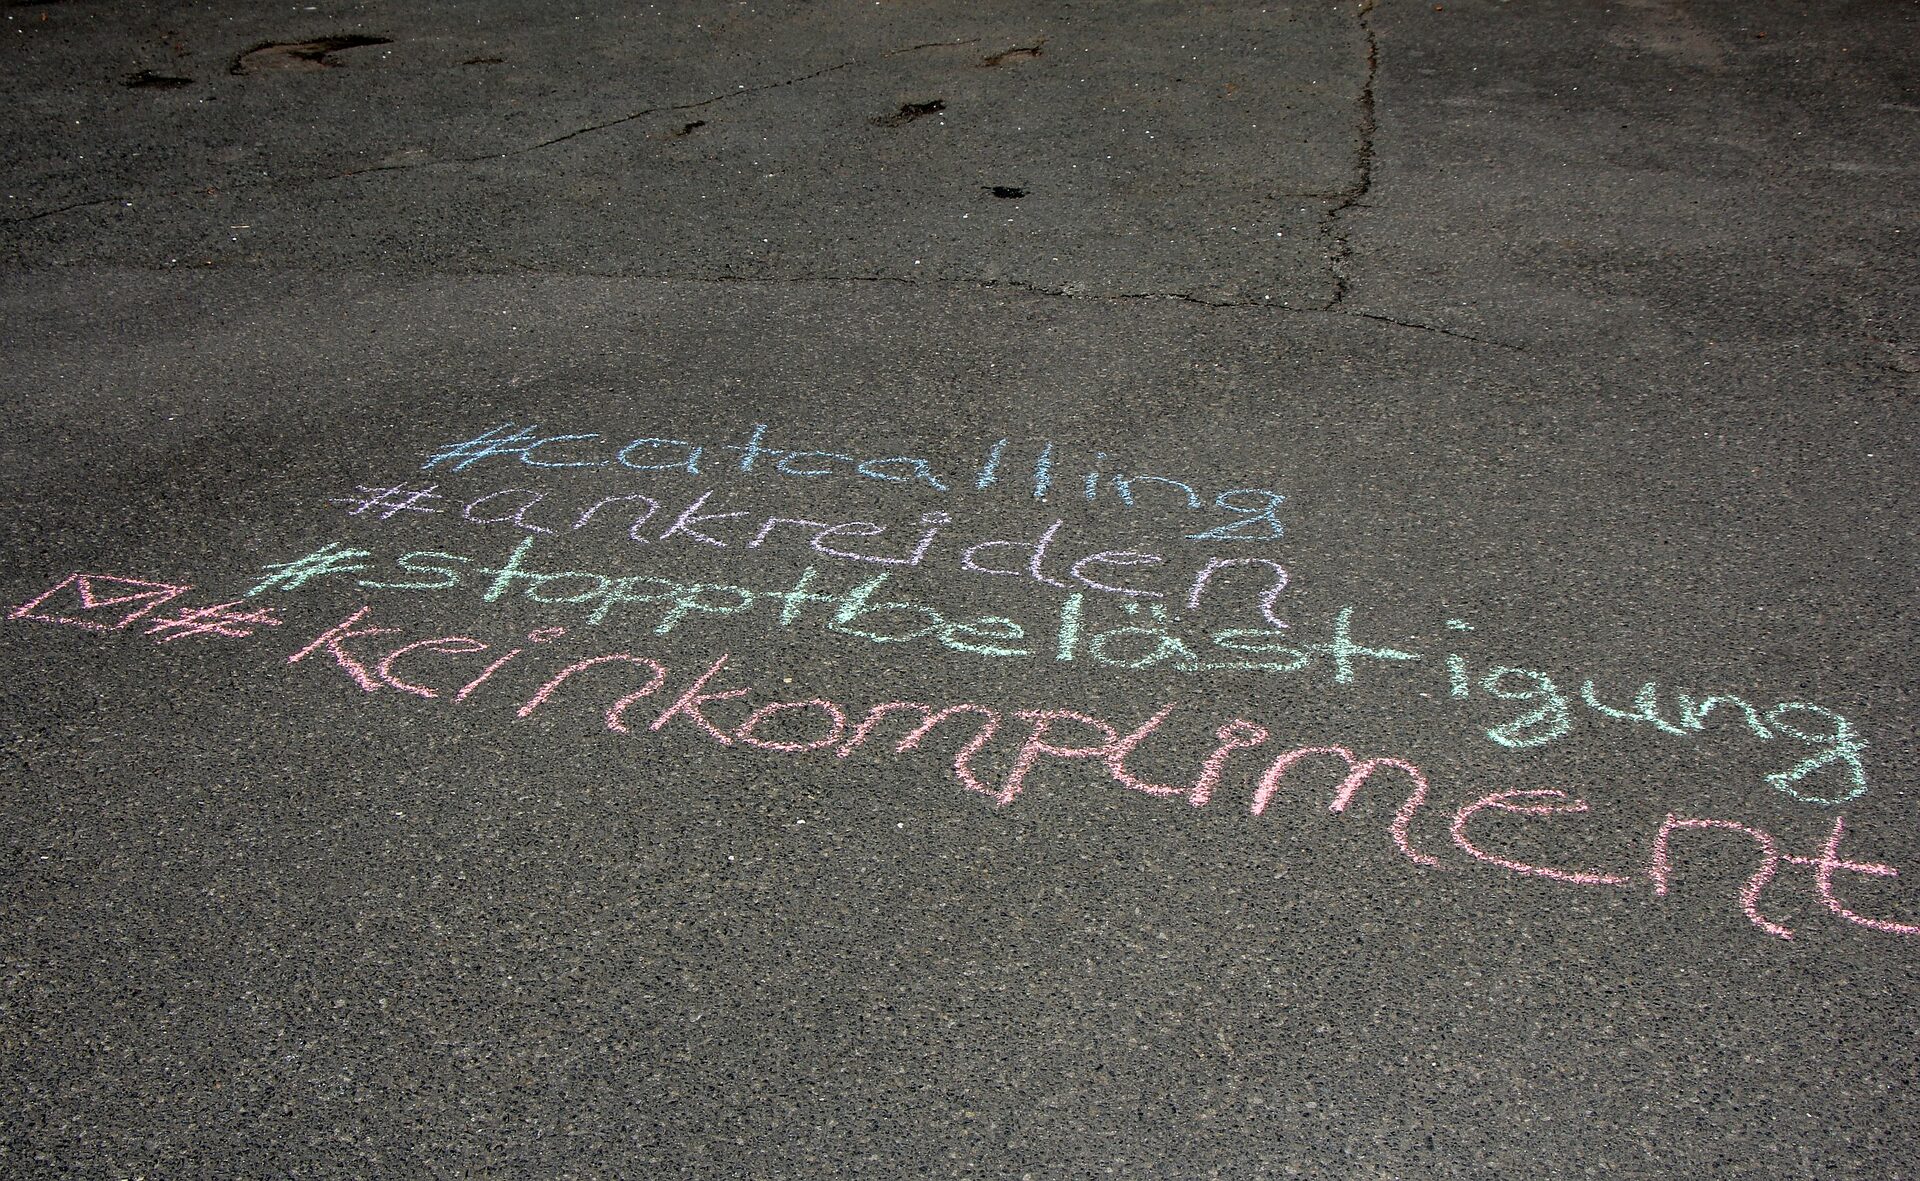 #catcalling
#ankreiden
#stopptbelästigung
#keinkompliment